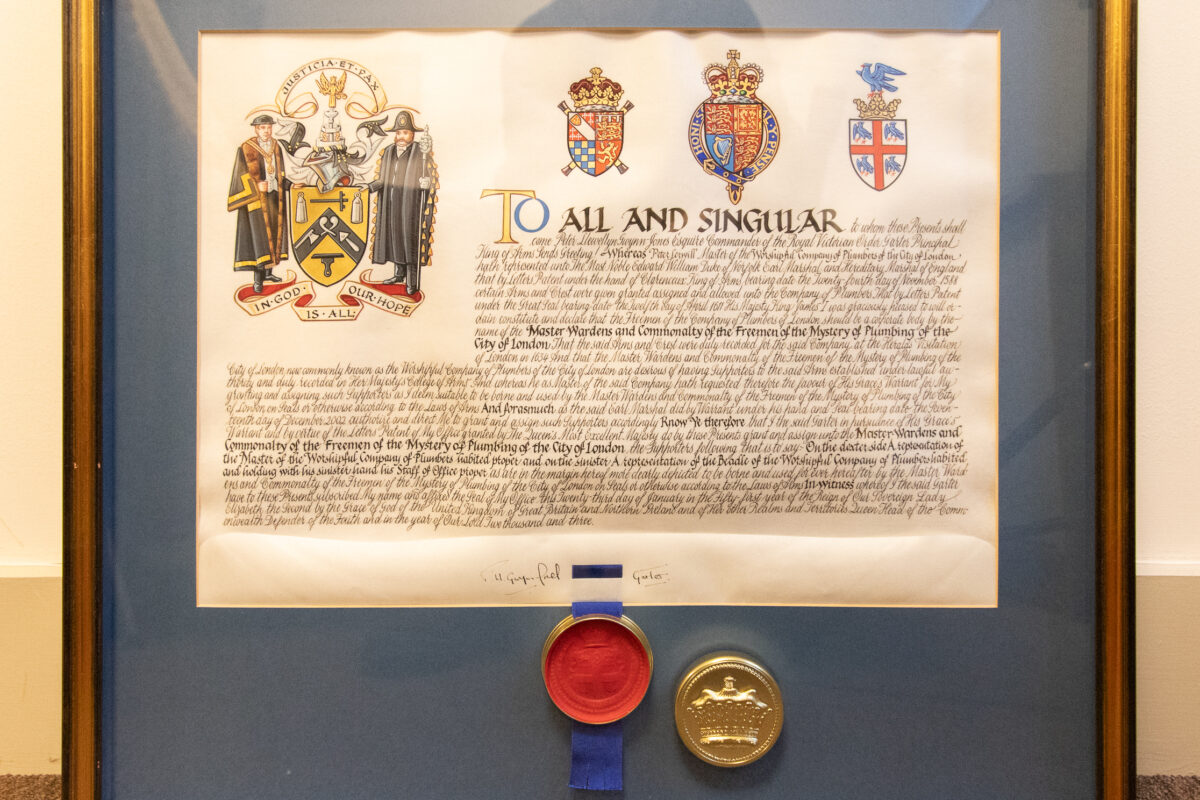 JUSTICIA·ET·PAX
IN·GOD· IS·ALL· OUR·HOPE
HONI·SOIT MAL·Y·PENSE
TO ALL AND SINGULAR to whom these Presents shall
come Peter Llewellyn Gwynn-Jones Esquire Commander of the Royal Victorian Order Garter Principal
King of Arms Sends Greeting! Whereas Peter Master of the Worshipful Company of Plumbers of the City of London
hath represented unto The Most Noble Edward William Duke of Norfolk Earl Marshal and Hereditary Marshal of England
that by Letters Patent under the hand of Clarenceux King of Arms bearing date the Twenty-fourth day of November 1588
certain Arms and Crest were given granted assigned and allowed unto the Company of Plumbers That by Letters Patent
under the Great Seal bearing date the twelfth day of April 1611 His Majesty King James I was graciously pleased to will or-
dain constitute and declare that the Freemen of the Company of Plumbers of London should be a corporate body by the
name of the Master Wardens and Commonalty of the Freemen of the Mystery of Plumbing of the
City of London That the said Arms and Crest were duly recorded for the said Company at the Heralds Visitation
of London in 1634 And that the Master Wardens and Commonalty of the Freemen of the Mystery of Plumbing of the
City of London now commonly known as the Worshipful Company of Plumbers of the City of London are desirous of having Supporters to the said Arms established under lawful au-
thority and duly recorded in Her Majesty's College of Arms And whereas he as Master of the said Company hath requested therefore the favour of His Grace's Warrant for My
granting and assigning such Supporters as I deem suitable to be borne and used by the Master Wardens and Commonalty of the Freemen of the Mystery of Plumbing of the City
of London on Seals or otherwise according to the Laws of Arms And forasmuch as the said Earl Marshal did by Warrant under his hand and Seal bearing date the Seven-
teenth day of December 2002 authorize and direct Me to grant and assign such Supporters accordingly Know Ye therefore that I the said Garter in pursuance of His Grace's
Warrant and by virtue of the Letters Patent of My Office granted by The Queen's Most Excellent Majesty do by these Presents grant and assign unto the Master Wardens and
Commonalty of the Freemen of the Mystery of Plumbing of the City of London the Supporters following that is to say On the dexter side A representation of
the Master of the Worshipful Company of Plumbers habited proper and on the sinister A representation of the Beadle of the Worshipful Company of Plumbers habited
and holding with his sinister hand his Staff of Office proper as are in the margin hereof more clearly depicted to be borne and used for ever hereafter by the Master Ward-
ens and Commonalty of the Freemen of the Mystery of Plumbing of the City of London on Seals or otherwise according to the Laws of Arms In witness whereof I the said Garter
have to these Presents subscribed My name and affixed the Seal of My Office this Twenty third day of January in the Fifty-first year of the Reign of Our Sovereign Lady
Elizabeth the Second by the Grace of God of the United Kingdom of Great Britain and Northern Ireland and of Her other Realms and Territories Queen Head of the Comm-
onwealth Defender of the Faith and in the year of Our Lord Two thousand and three.
Garter